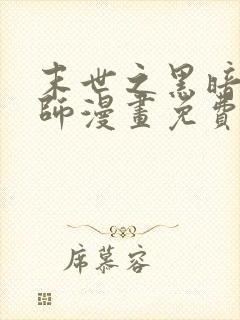 末世之黑暗
師漫畫免費
席慕容